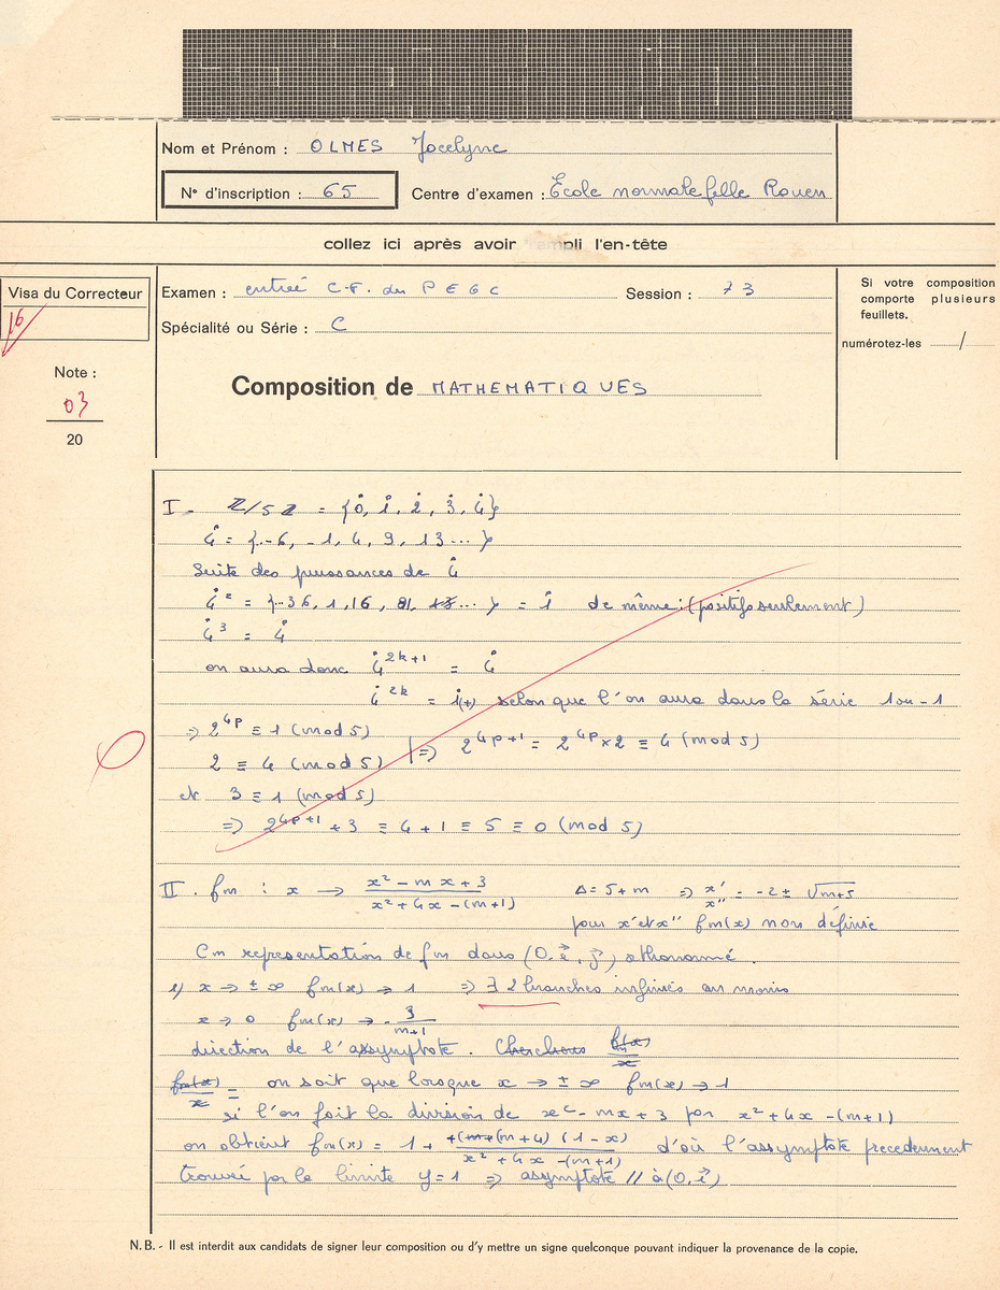 Nom et Prénom : OLMES Jocelyne
N° d'inscription : 65 Centre d'examen : École normale fille Rouen
collez ici après avoir rempli l'en-tête
Visa du Correcteur
16
Examen : entrée C.F. du P E G C Session : 73
Spécialité ou Série : C
Si votre composition
comporte plusieurs
feuillets.
numérotez-les /
Note :
03
20
Composition de MATHEMATIQUES
I. Z/5Z = {0̇, 1̇, 2̇, 3̇, 4̇}
4̇ = {..-6, -1, 4, 9, 13 ... }
Suite des puissances de 4̇
4̇² = {..36, 1, 16, 81, 13... } = 1̇ de même : (positifs seulement)
4̇³ = 4̇
on aura donc 4̇²ᵏ⁺¹ = 4̇
4̇²ᵏ = 1̇(+) selon que l'on aura dans la série 1 ou -1
⇒ 2⁴ᵖ ≡ 1 (mod 5)
2 ≡ 4 (mod 5) | ⇒ 2⁴ᵖ⁺¹ = 2⁴ᵖ × 2 ≡ 4 (mod 5)
et 3 ≡ 1 (mod 5)
⇒ 2⁴ᵖ⁺¹ + 3 ≡ 4 + 1 ≡ 5 ≡ 0 (mod 5)
0
II. fm : x → (x² - mx + 3)/(x² + 4x - (m+1)) Δ = 5 + m ⇒ x' x'' = -2 ± √(m+5)
pour x' et x'' fm(x) non définie
Cm representation de fm dans (O, i⃗, j⃗) othonormé.
1) x → ± ∞ fm(x) → 1 ⇒ ∃ 2 branches infinies au moins
x → 0 fm(x) → - 3/(m+1)
direction de l'assymptote. Cherchons f(x)/x
fm(x)/x = on sait que lorsque x → ± ∞ fm(x) → 1
si l'on fait la division de x² - mx + 3 par x² + 4x - (m+1)
on obtient fm(x) = 1 + (m+4)(1-x)/(x² + 4x - (m+1)) d'où l'assymptote precedemment
trouvée par la limite y = 1 ⇒ asymptote // à (O, i⃗)
N. B. - Il est interdit aux candidats de signer leur composition ou d'y mettre un signe quelconque pouvant indiquer la provenance de la copie.